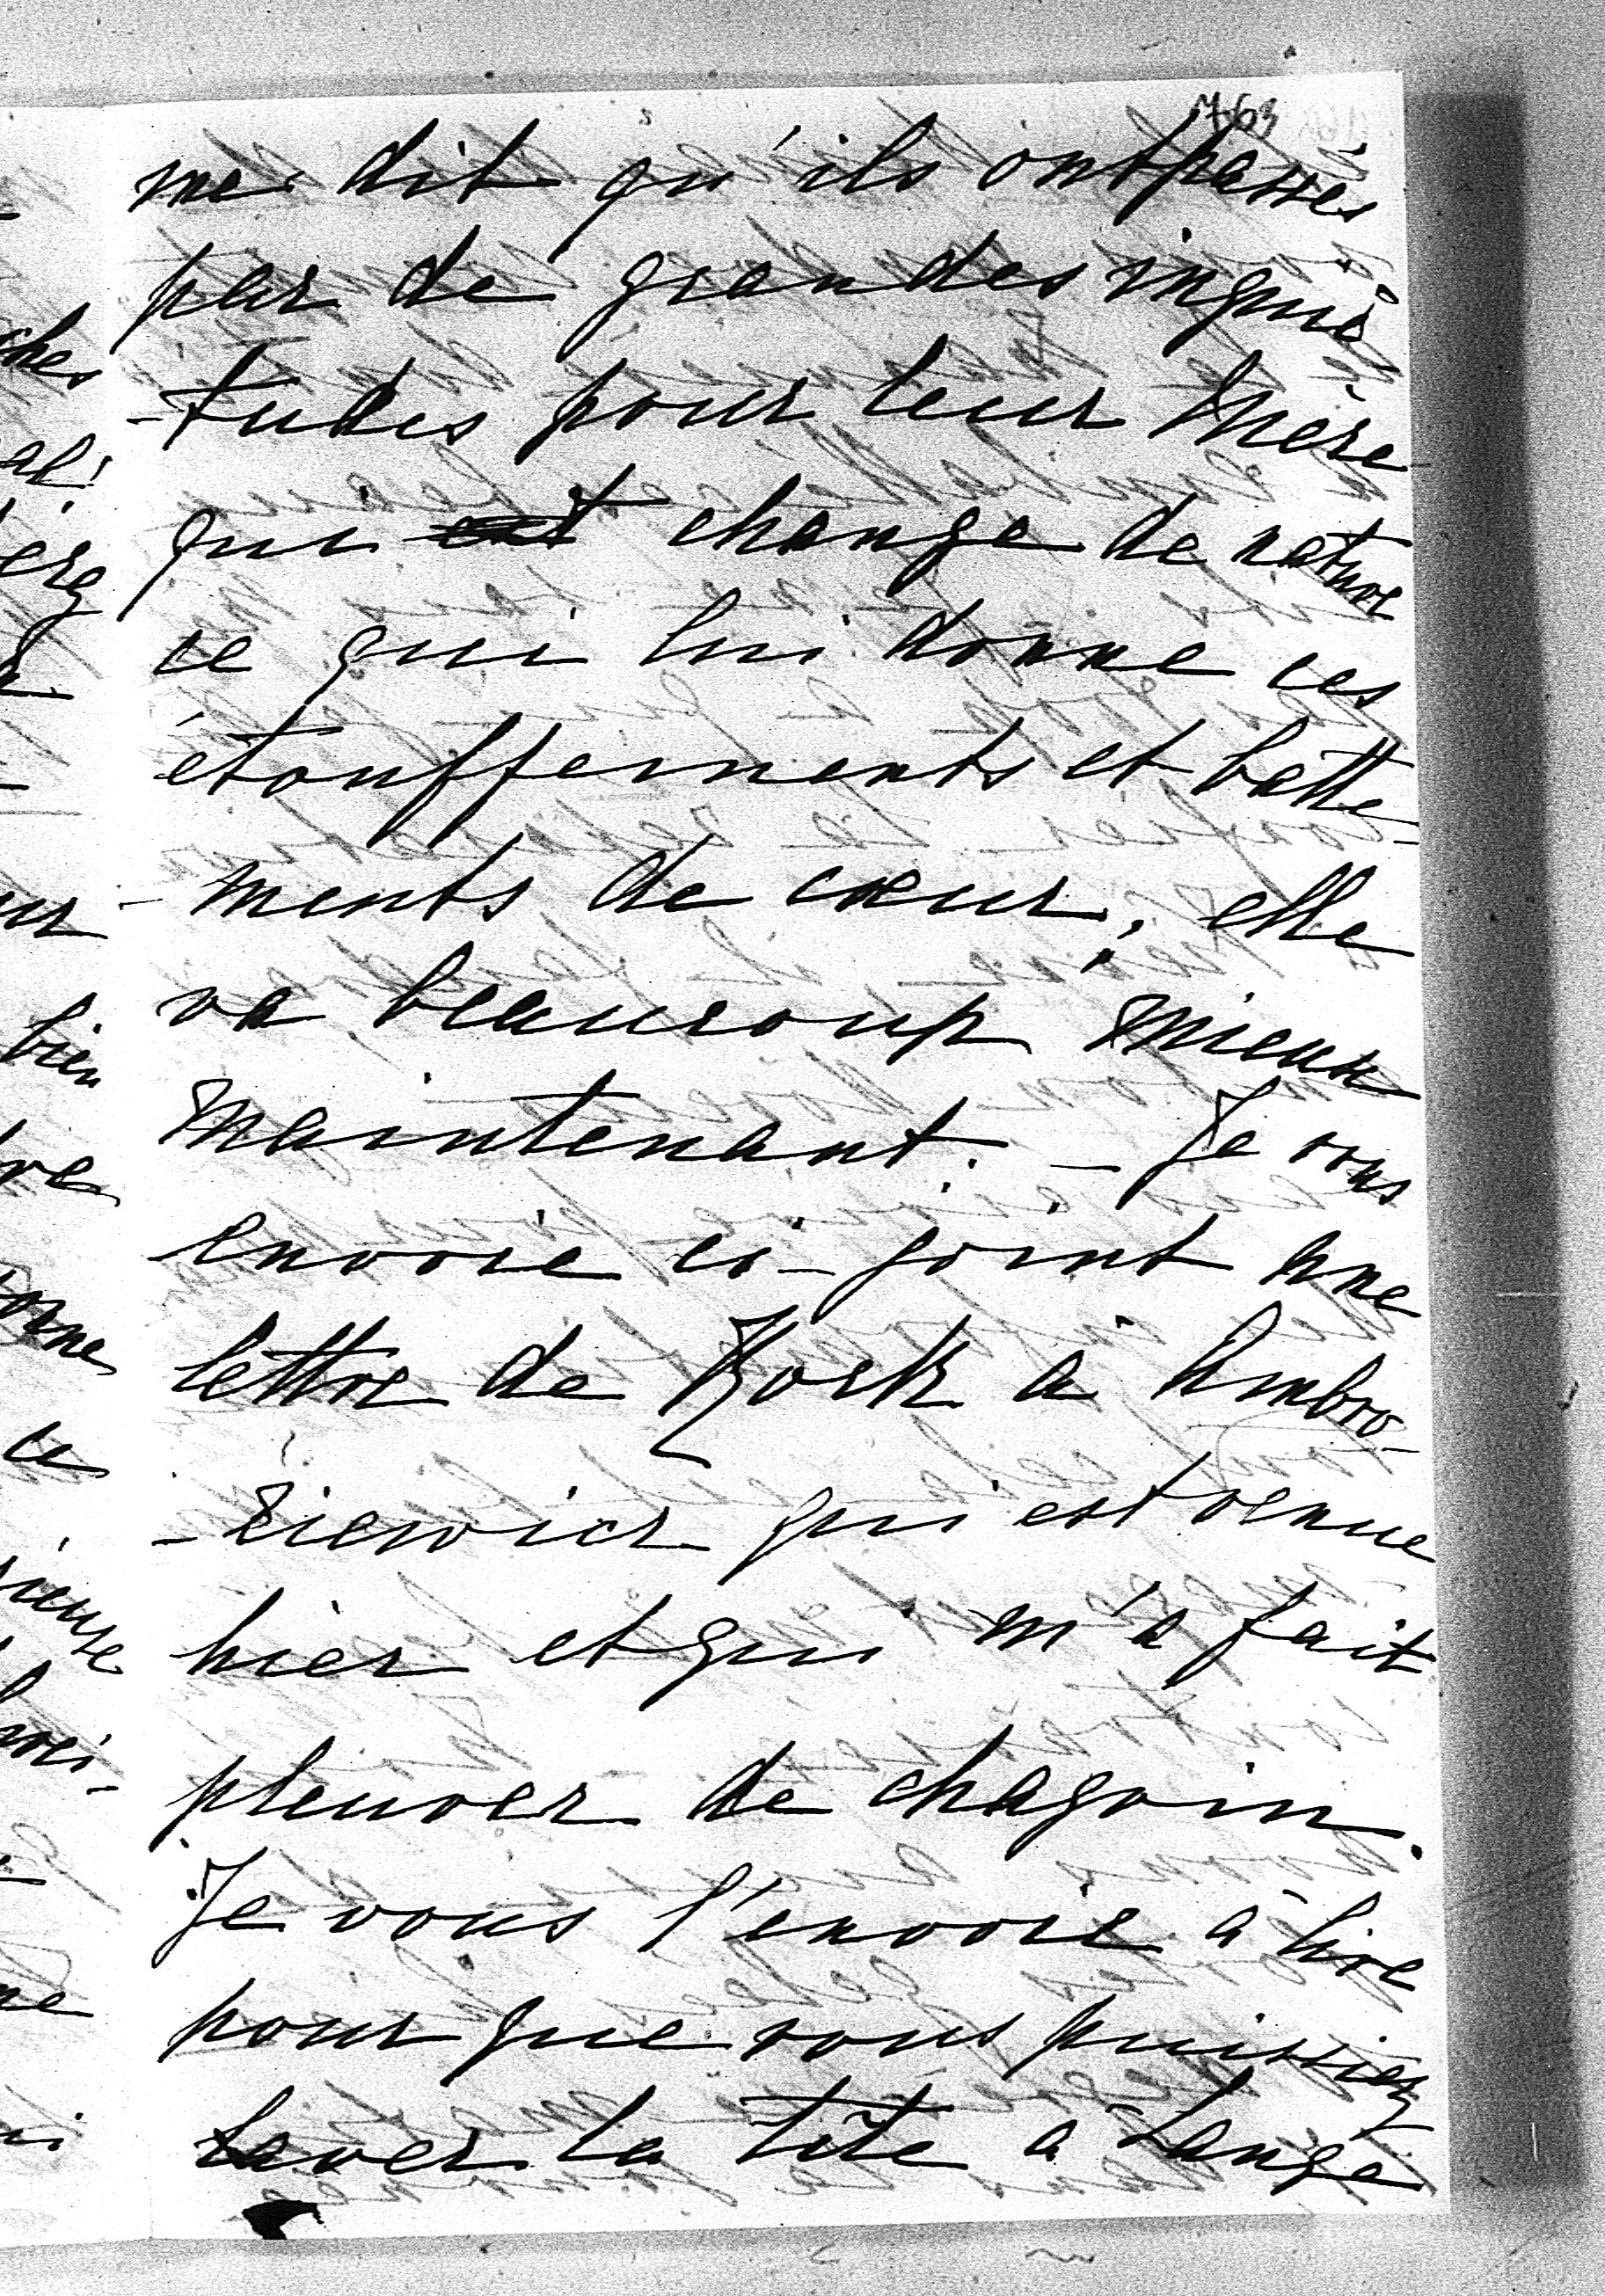 763
me dit qu'ils ont passés
par de grandes inquié
-tudes pour leur Mère
qui change de nature
ce qui lui donne ces
étouffements et batte-
-ments de cœur, elle
va beaucoup mieux
maintenant. - Je vous
envoie ci-joint une
lettre de à Ambro-
-ziewicz qui est venue
hier et qui m'a fait
pleurer de chagrin.
Je vous l'envoie à lire
pour que vous puissiez
laver la tête à Lange